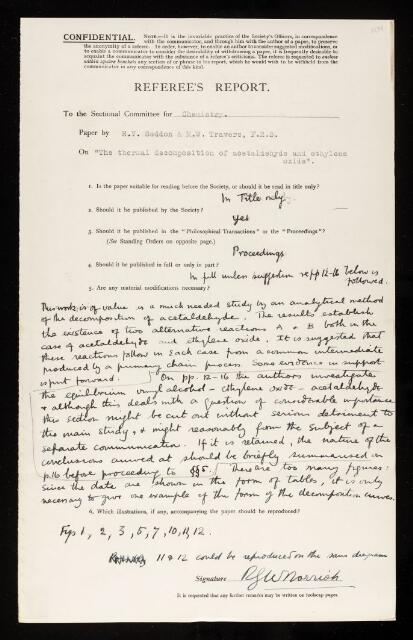 CONFIDENTIAL. NOTE.—It is the invariable practice of the Society's Officers, in correspondence
with the communicator, and through him with the author of a paper, to preserve
the anonymity of a referee. In order, however, to enable an author to consider suggested modifications, or
to enable a communicator to consider the desirability of withdrawing a paper, it is frequently desirable to
acquaint the communicator with the substance of a referee's criticisms. The referee is requested to enclose
within square brackets any section of or phrase in his report, which he would wish to be withheld from the
communicator in any correspondence of this kind.
REFEREE'S REPORT.
To the Sectional Committee for Chemistry.
Paper by R.V. Seddon & M.W. Travers, F.R.S.
On "The thermal decomposition of acetaldehyde and ethylene
oxide".
1. Is the paper suitable for reading before the Society, or should it be read in title only?
In Title only.
2. Should it be published by the Society?
yes
3. Should it be published in the "Philosophical Transactions" or the "Proceedings"?
(See Standing Orders on opposite page.)
Proceedings
4. Should it be published in full or only in part?
In full unless suggestion re pp 12-16 below is
followed.
5. Are any material modifications necessary?
This work is of value is a much needed study by an analytical method
of the decomposition of acetaldehyde. The results establish
the existence of two alternative reactions A & B both in the
case of acetaldehyde and ethylene oxide. It is suggested that
these reactions follow in each case from a common intermediate
produced by a primary chain process. Some evidence in support
is put forward. [On pp. 12-16 the authors investigate
the equilibrium vinyl alcohol - ethylene oxide - acetaldehyde
& although this deals with a question of considerable importance
this section might be cut out without serious detriment to
the main study, & might reasonably form the subject of a
separate communication. If it is retained, the nature of the
conclusions arrived at should be briefly summarised on
p.16 before proceeding to §5.] There are too many figures:
since the data are shown in the form of tables, it is only
necessary to give one example of the form of the decomposition curves.
6. Which illustrations, if any, accompanying the paper should be reproduced?
Figs 1, 2, 3, 5, 7, 10, 11, 12.
11 & 12 could be reproduced on the same diagram
Signature RGWNorrish
It is requested that any further remarks may be written on foolscap paper.